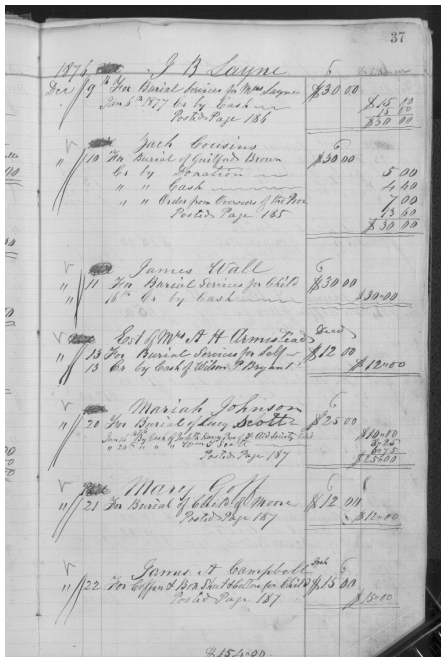 37
1876 J B Layne
Dec 9th For Burial Services for Mrs Layne $30 00
Jan 6th 1877 Cr by Cash $15 00
15 00
Posted Page 186 $30 00
Zach Cousins
" 10 For Burial of Guilford Brown $30 00
Cr by Donation 5 00
" " Cash 4 40
" " Order from Overseers of the Poor 7 00
13 60
Posted Page 185 $30 00
James Wall
" 11 For Burial Services for Child $30 00
" 16th Cr by Cash $30=00
Est of Mrs A H Armistead Decd
" 13 For Burial Services for Self $12 00
13 Cr by Cash of Wilson P Bryant $12=00
Mariah Johnson
" 20 For Burial of Lucy Scott $25 00
By Cash of $10=00
Posted Page 187 $25=00
Mary Goff
" 21 For Burial of Child of Moore $12 00
Posted Page 187 $12=00
James A Campbell
" 22 For Coffin & Box for Child $15 00
Posted Page 187 $15=00
$154=00